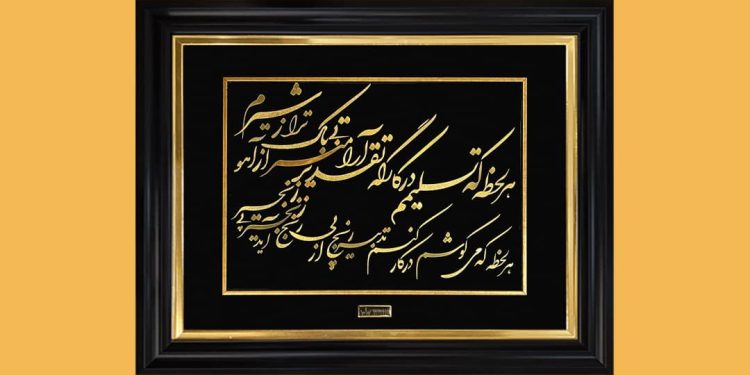 هر لحظه که تسلیمم در کارگه تقدیر آرام تر از آهو بی باک تر از شیرم
هر لحظه که می کوشم در کار کنم تدبیر رنج از پی رنج آید زنجیر پی زنجیر